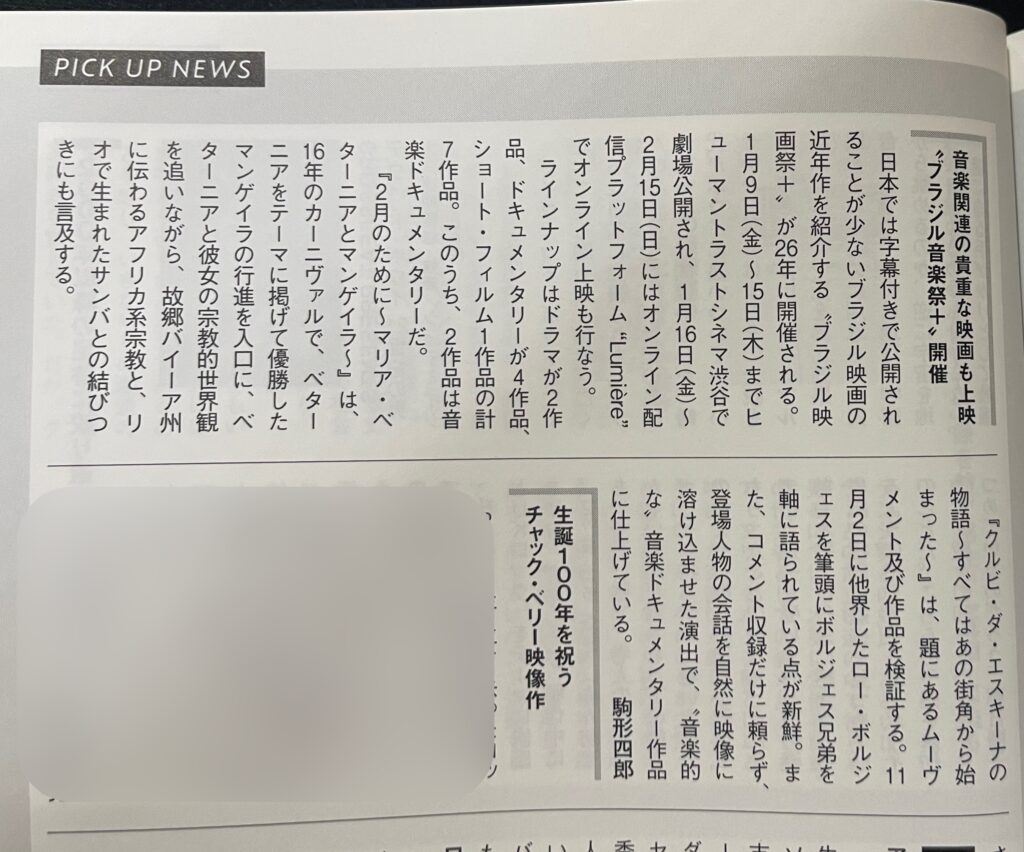 PICK UP NEWS
音楽関連の貴重な映画も上映
〝ブラジル音楽祭＋〟開催
日本では字幕付きで公開され
ることが少ないブラジル映画の
近年作を紹介する〝ブラジル映
画祭＋〟が26年に開催される。
1月9日（金）～15日（木）までヒ
ューマントラストシネマ渋谷で
劇場公開され、1月16日（金）～
2月15日（日）にはオンライン配
信プラットフォーム“Lumière”
でオンライン上映も行なう。
ラインナップはドラマが2作
品、ドキュメンタリーが4作品、
ショート・フィルム1作品の計
7作品。このうち、2作品は音
楽ドキュメンタリーだ。
『2月のために～マリア・ベ
ターニアとマンゲイラ～』は、
16年のカーニヴァルで、ベター
ニアをテーマに掲げて優勝した
マンゲイラの行進を入口に、ベ
ターニアと彼女の宗教的世界観
を追いながら、故郷バイーア州
に伝わるアフリカ系宗教と、リ
オで生まれたサンバとの結びつ
きにも言及する。
『クルビ・ダ・エスキーナの
物語～すべてはあの街角から始
まった～』は、題にあるムーヴ
メント及び作品を検証する。11
月2日に他界したロー・ボルジ
ェスを筆頭にボルジェス兄弟を
軸に語られている点が新鮮。ま
た、コメント収録だけに頼らず、
登場人物の会話を自然に映像に
溶け込ませた演出で、〝音楽的
な〟音楽ドキュメンタリー作品
に仕上げている。　駒形四郎
生誕100年を祝う
チャック・ベリー映像作